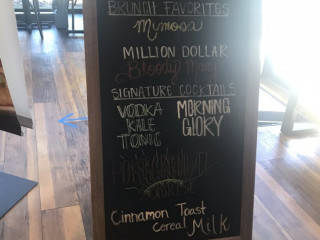 BRUNCH FAVORITES
Mimosa
MILLION DOLLAR
Bloody Mary
SIGNATURE COCKTAILS
VODKA
KALE
TONIC
MORNING
GLORY
Cinnamon Toast
Cereal Milk